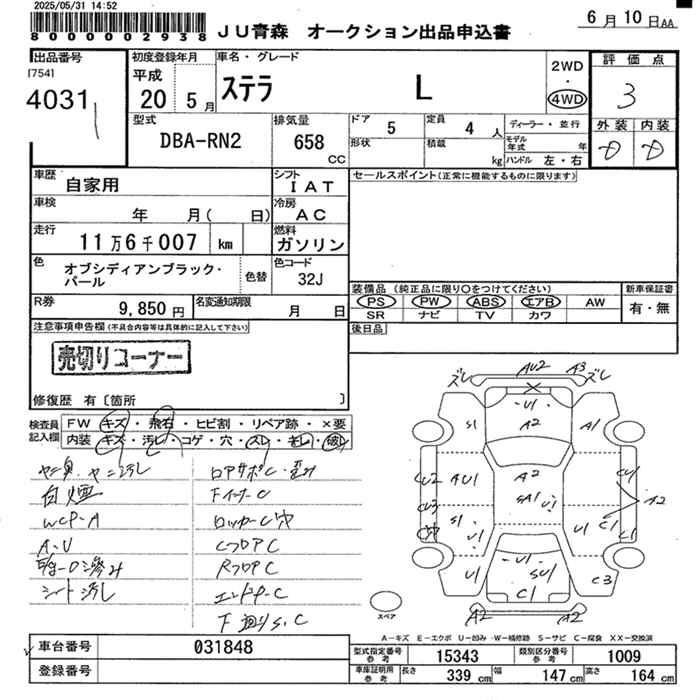 2025/05/31 14:52
800002938
JU青森 オークション出品申込書
6月10日AA
出品番号
[754]
4031
初度登録年月
平成
20 5月
車名・グレード
ステラ L
2WD
・
4WD
評価点
3
外装 内装
D D
型式
DBA-RN2
排気量
658
CC
ドア 5
定員 4 人
ディーラー・並行
形状
積載 kg
モデル年式 年
ハンドル 左・右
車歴 自家用
シフト IAT
セールスポイント(正常に機能するものに限ります)
車検 年 月( 日)
冷房 AC
走行 11万6千007 km
燃料 ガソリン
色 オブシディアンブラック・パール
色替
色コード 32J
装備品 (純正品に限り○をつけてください)
新車保証書
PS PW ABS エアB AW
有・無
SR ナビ TV カワ
R券 9,850円
名変通知期限 月 日
後日品
注意事項申告欄(不具合内容等は具体的に記入して下さい)
売切りコーナー
修復歴 有〔箇所 〕
検査員記入欄
FW キズ・飛石・ヒビ割・リペア跡・×要
内装 キズ・汚レ・コゲ・穴・スレ・キレ・破レ
ヤニ臭、ヤニ汚レ
白煙
WCP-A
A・U
シート汚レ
ロアサポC・歪み
FインナーC
ロッカーC穴
CフロアC
RフロアC
エンドP-C
下廻りS.C
ズレ AU2 A3 ズレ
U1
S1 A2 A1
CU2 AU1 A2 CU1
CU3 SA1 U1 A2
S1 U1 U1 C1
U1 U1 SU1 C3
C1
A2 A2
スペア
A-キズ E-エクボ U-凹み W-補修跡 S-サビ C-腐食 XX-交換済
車台番号 031848
型式指定番号参考 15343
類別区分番号参考 1009
登録番号
車庫証明用参考
長さ 339 cm
幅 147 cm
高さ 164 cm